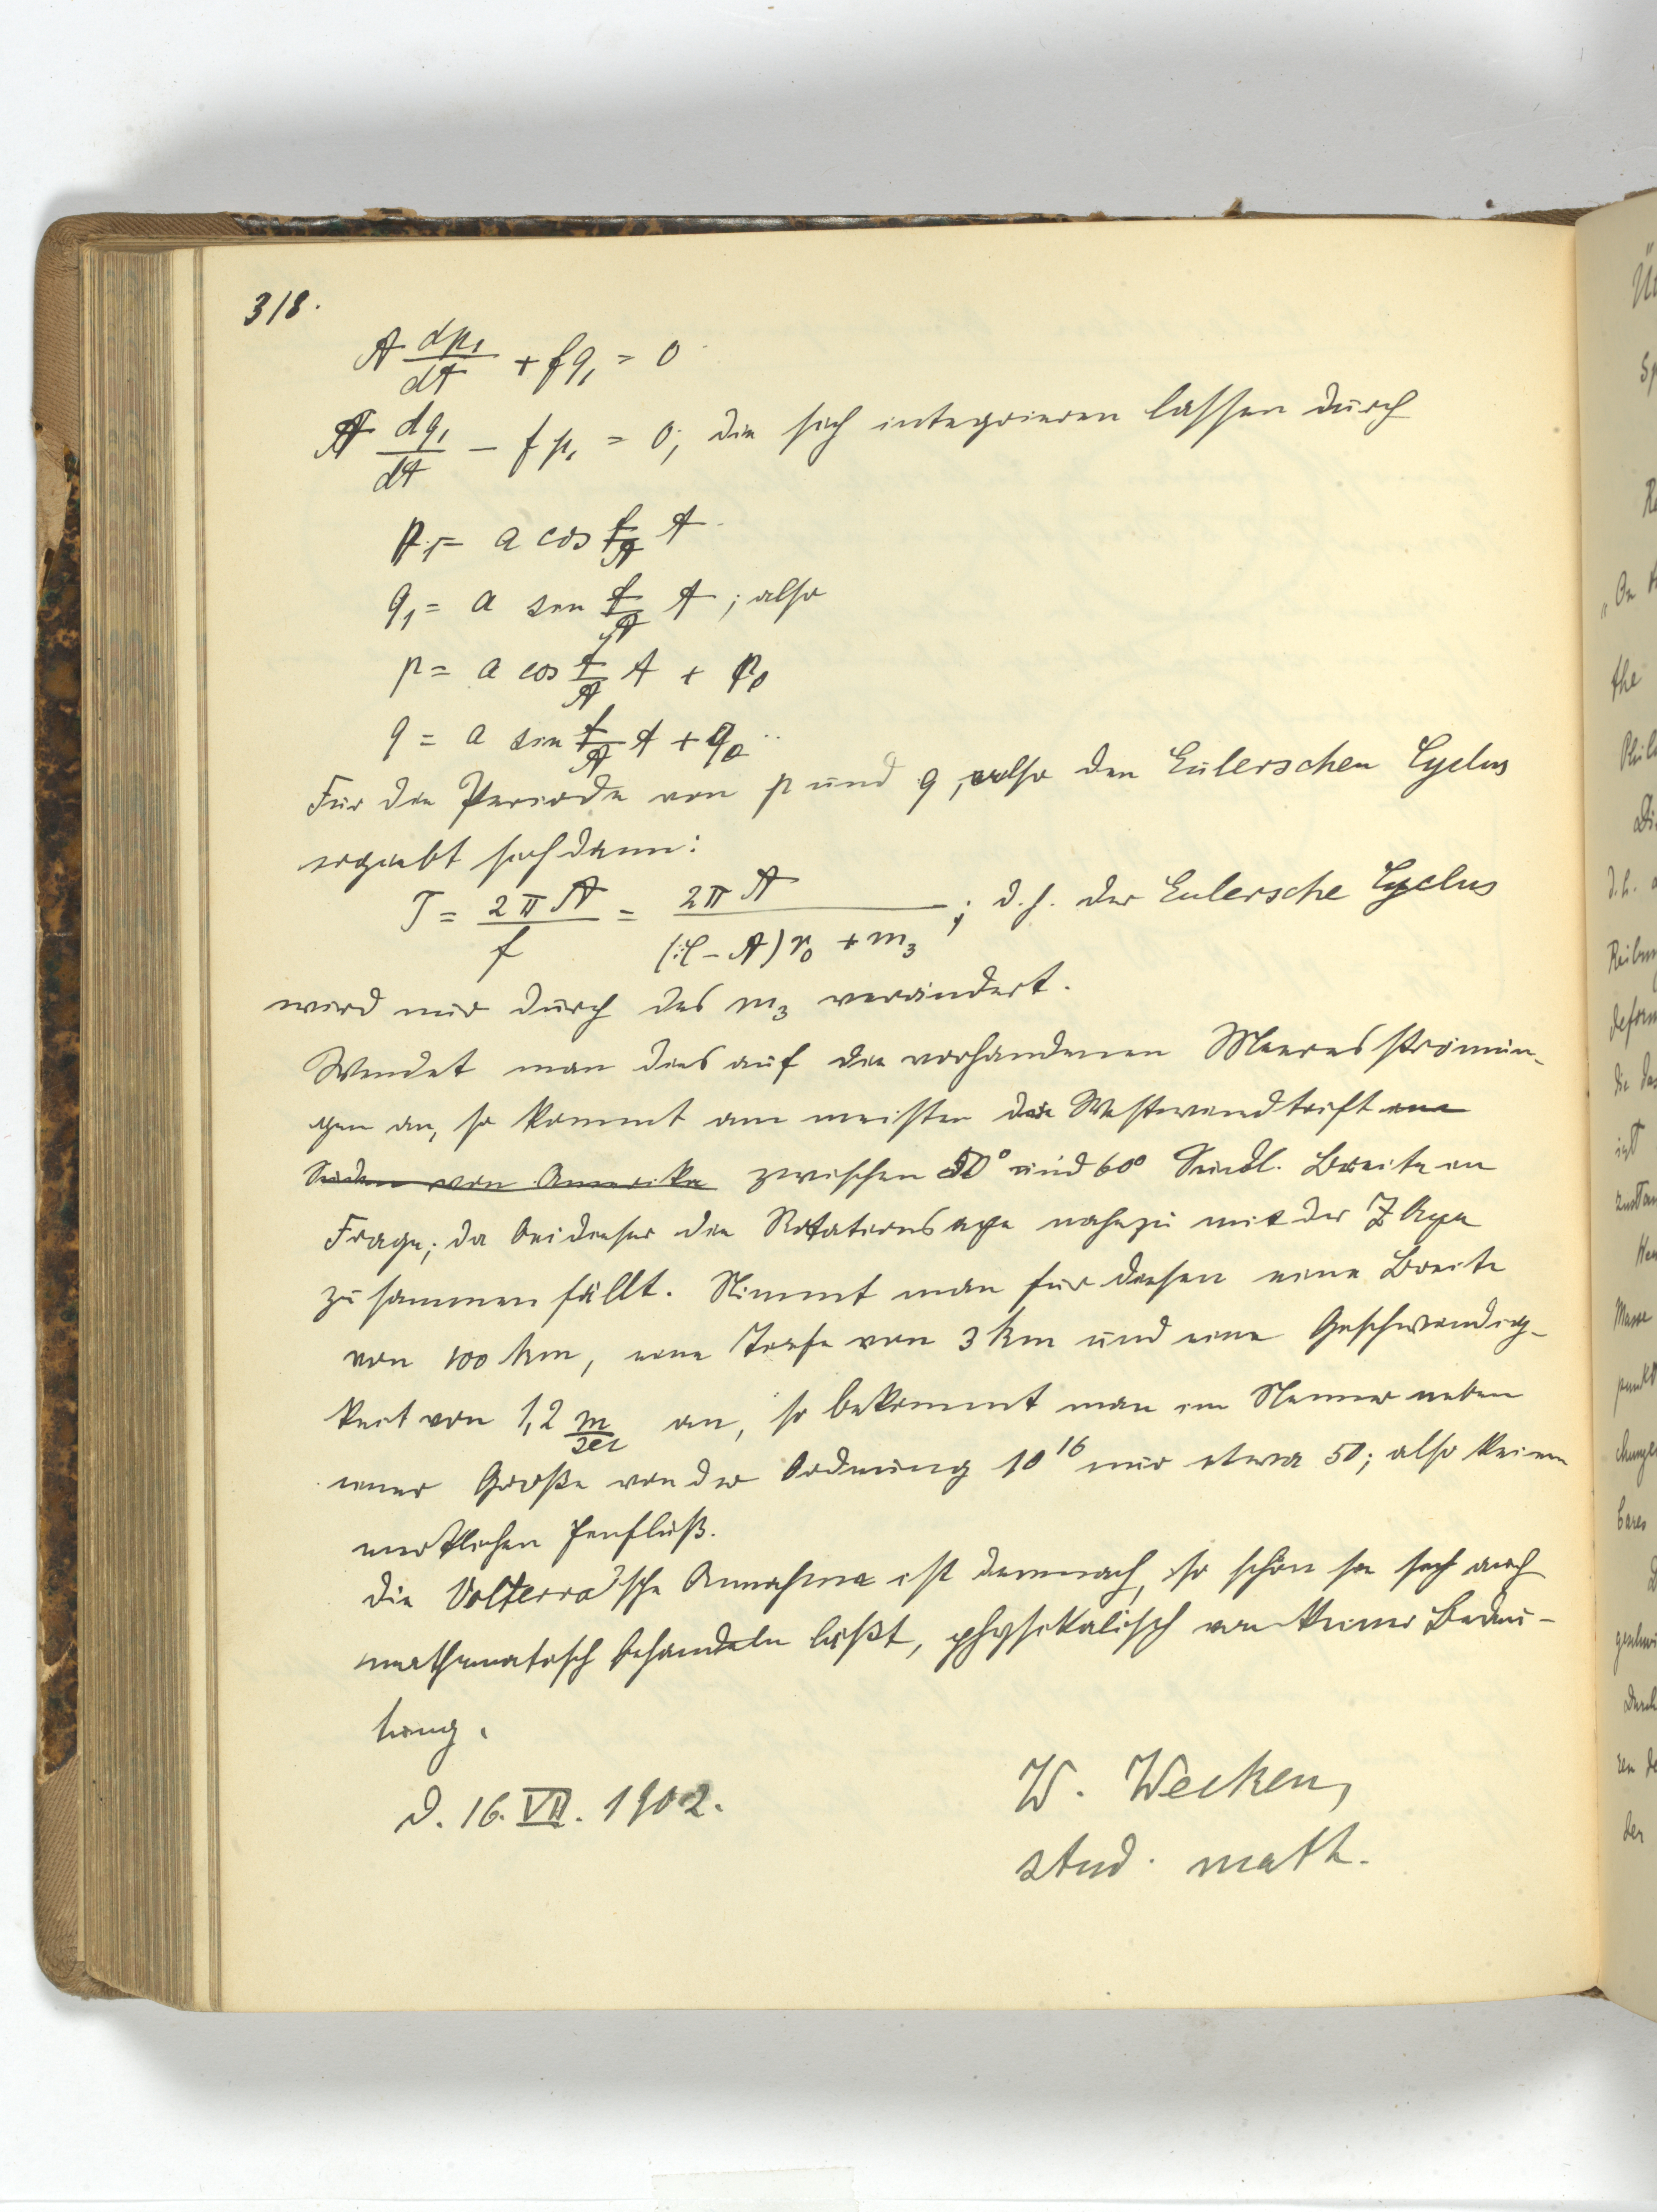 318.
A dp₁/dt + f q₁ = 0
A dq₁/dt − f p₁ = 0; die sich integrieren lassen durch
p₁ = a cos f/A t
q₁ = a sin f/A t; also
p = a cos f/A t + p₀
q = a sin f/A t + q₀
Für die Periode von p und q, also den Eulerschen Cyclus
ergiebt sich dann:
T = 2πA/f = 2πA/((C−A)r₀ + m₃); d.h. der Eulersche Cyclus
wird nur durch das m₃ verändert.
Wendet man dies auf die vorhandenen Meeresströmun-
gen an, so kommt am meisten die Westwindtrift im
Süden von Amerika zwischen 50° und 60° Südl. Breite in
Frage; da bei dieser die Rotationsaxe nahezu mit der Z Axe
zusammenfällt. Nimmt man für diesen eine Breite
von 100 km, eine Tiefe von 3 km und eine Geschwindig-
keit von 1,2 m/sec an, so bekommt man im Nenner neben
einer Größe von der Ordnung 10¹⁶ nur etwa 50; also keinen
merklichen Einfluß.
Die Volterra'sche Annahme ist demnach, so schön sie sich auch
mathematisch behandeln läßt, physikalisch von keiner Bedeu-
tung.
D. 16. VII. 1902.
W. Wecken,
stud. math.